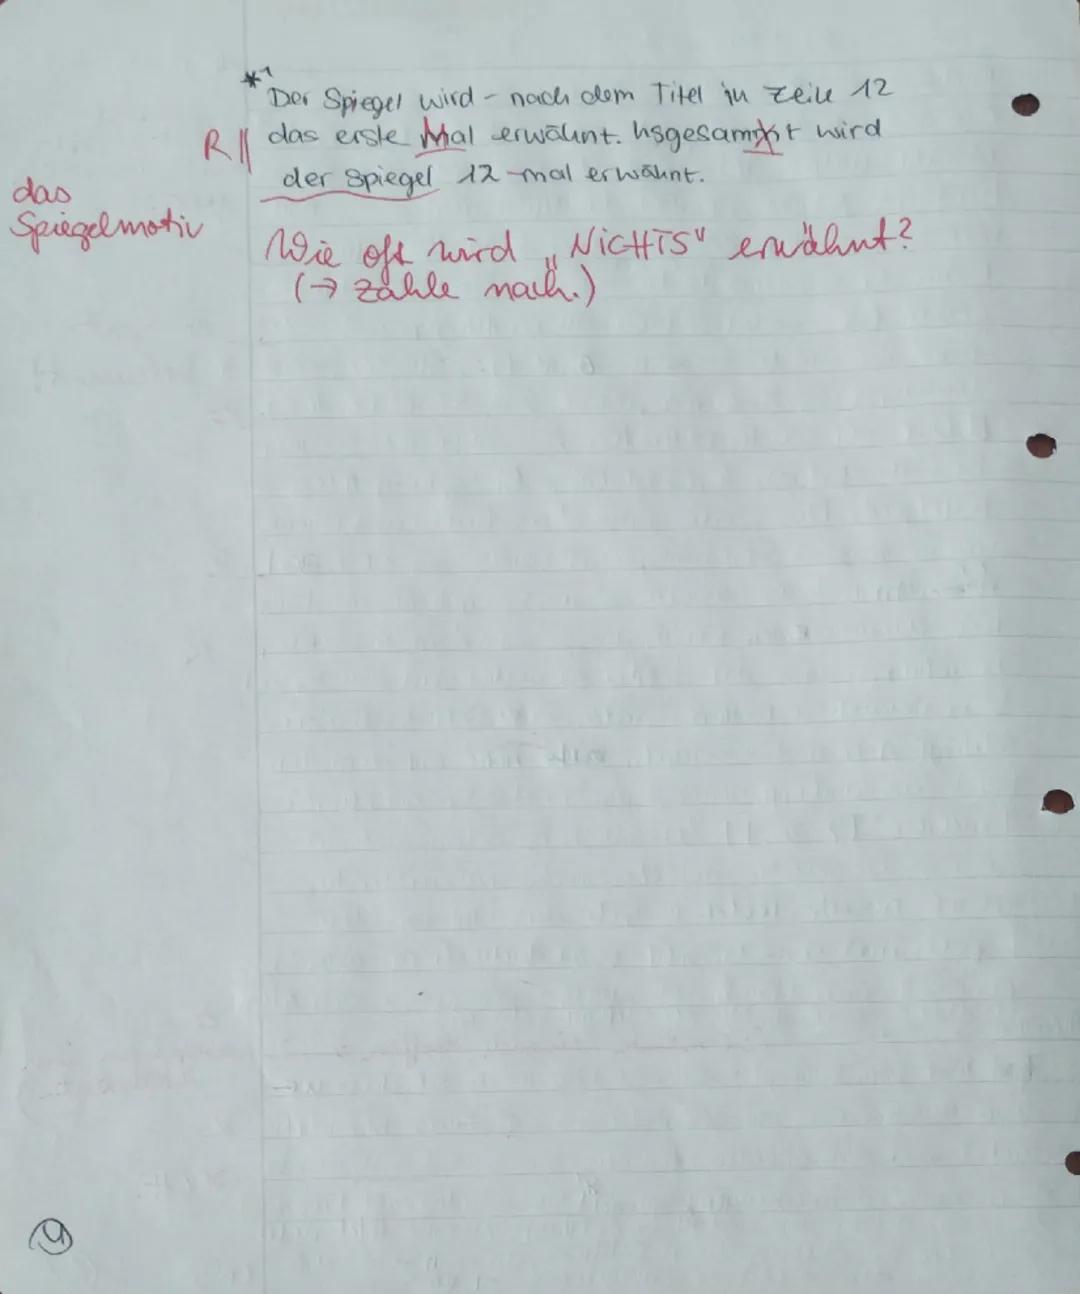 *1
Der Spiegel wird - nach dem Titel in Zeile 12
R || das erste Mal erwähnt. Insgesammt wird
der Spiegel 12-mal erwähnt.
das
Spiegelmotiv
Wie oft wird „NICHTS" erwähnt?
(→ zähle nach.)